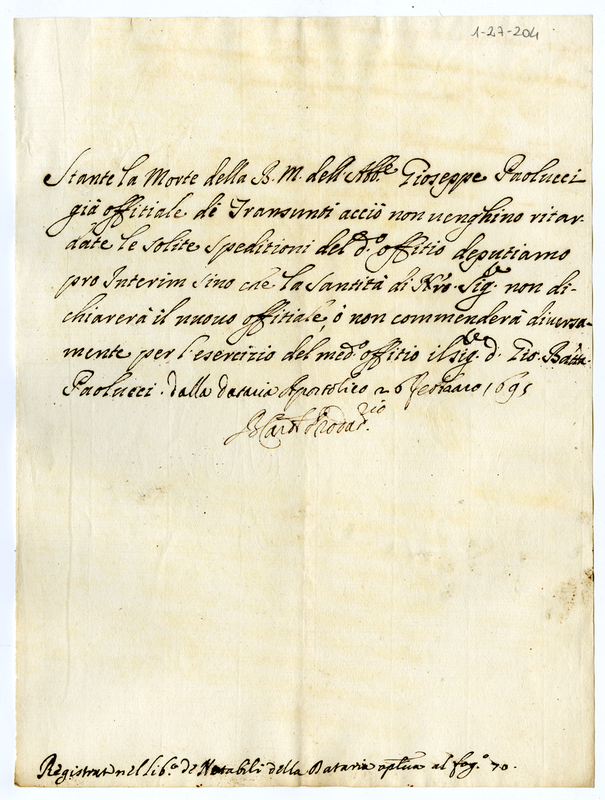 1-27-204
Stante la Morte della B. M. dell'Abb.e Gioseppe Paolucci
già offitiale de Transunti acciò non venghino ritar-
date le solite speditioni del d.o offitio deputiamo
pro Interim sino che la Santità di Nro Sig.re non di-
chiarerà il nuovo offitiale, ò non commenderà diversa-
mente per l'esercizio del med.o offitio il Sig.re d. Gio. Batta
Paolucci. Dalla Dataria Apostolica 26 1695
Registrat nel lib.o de Notabili della Dataria aplica al fog.o 70.